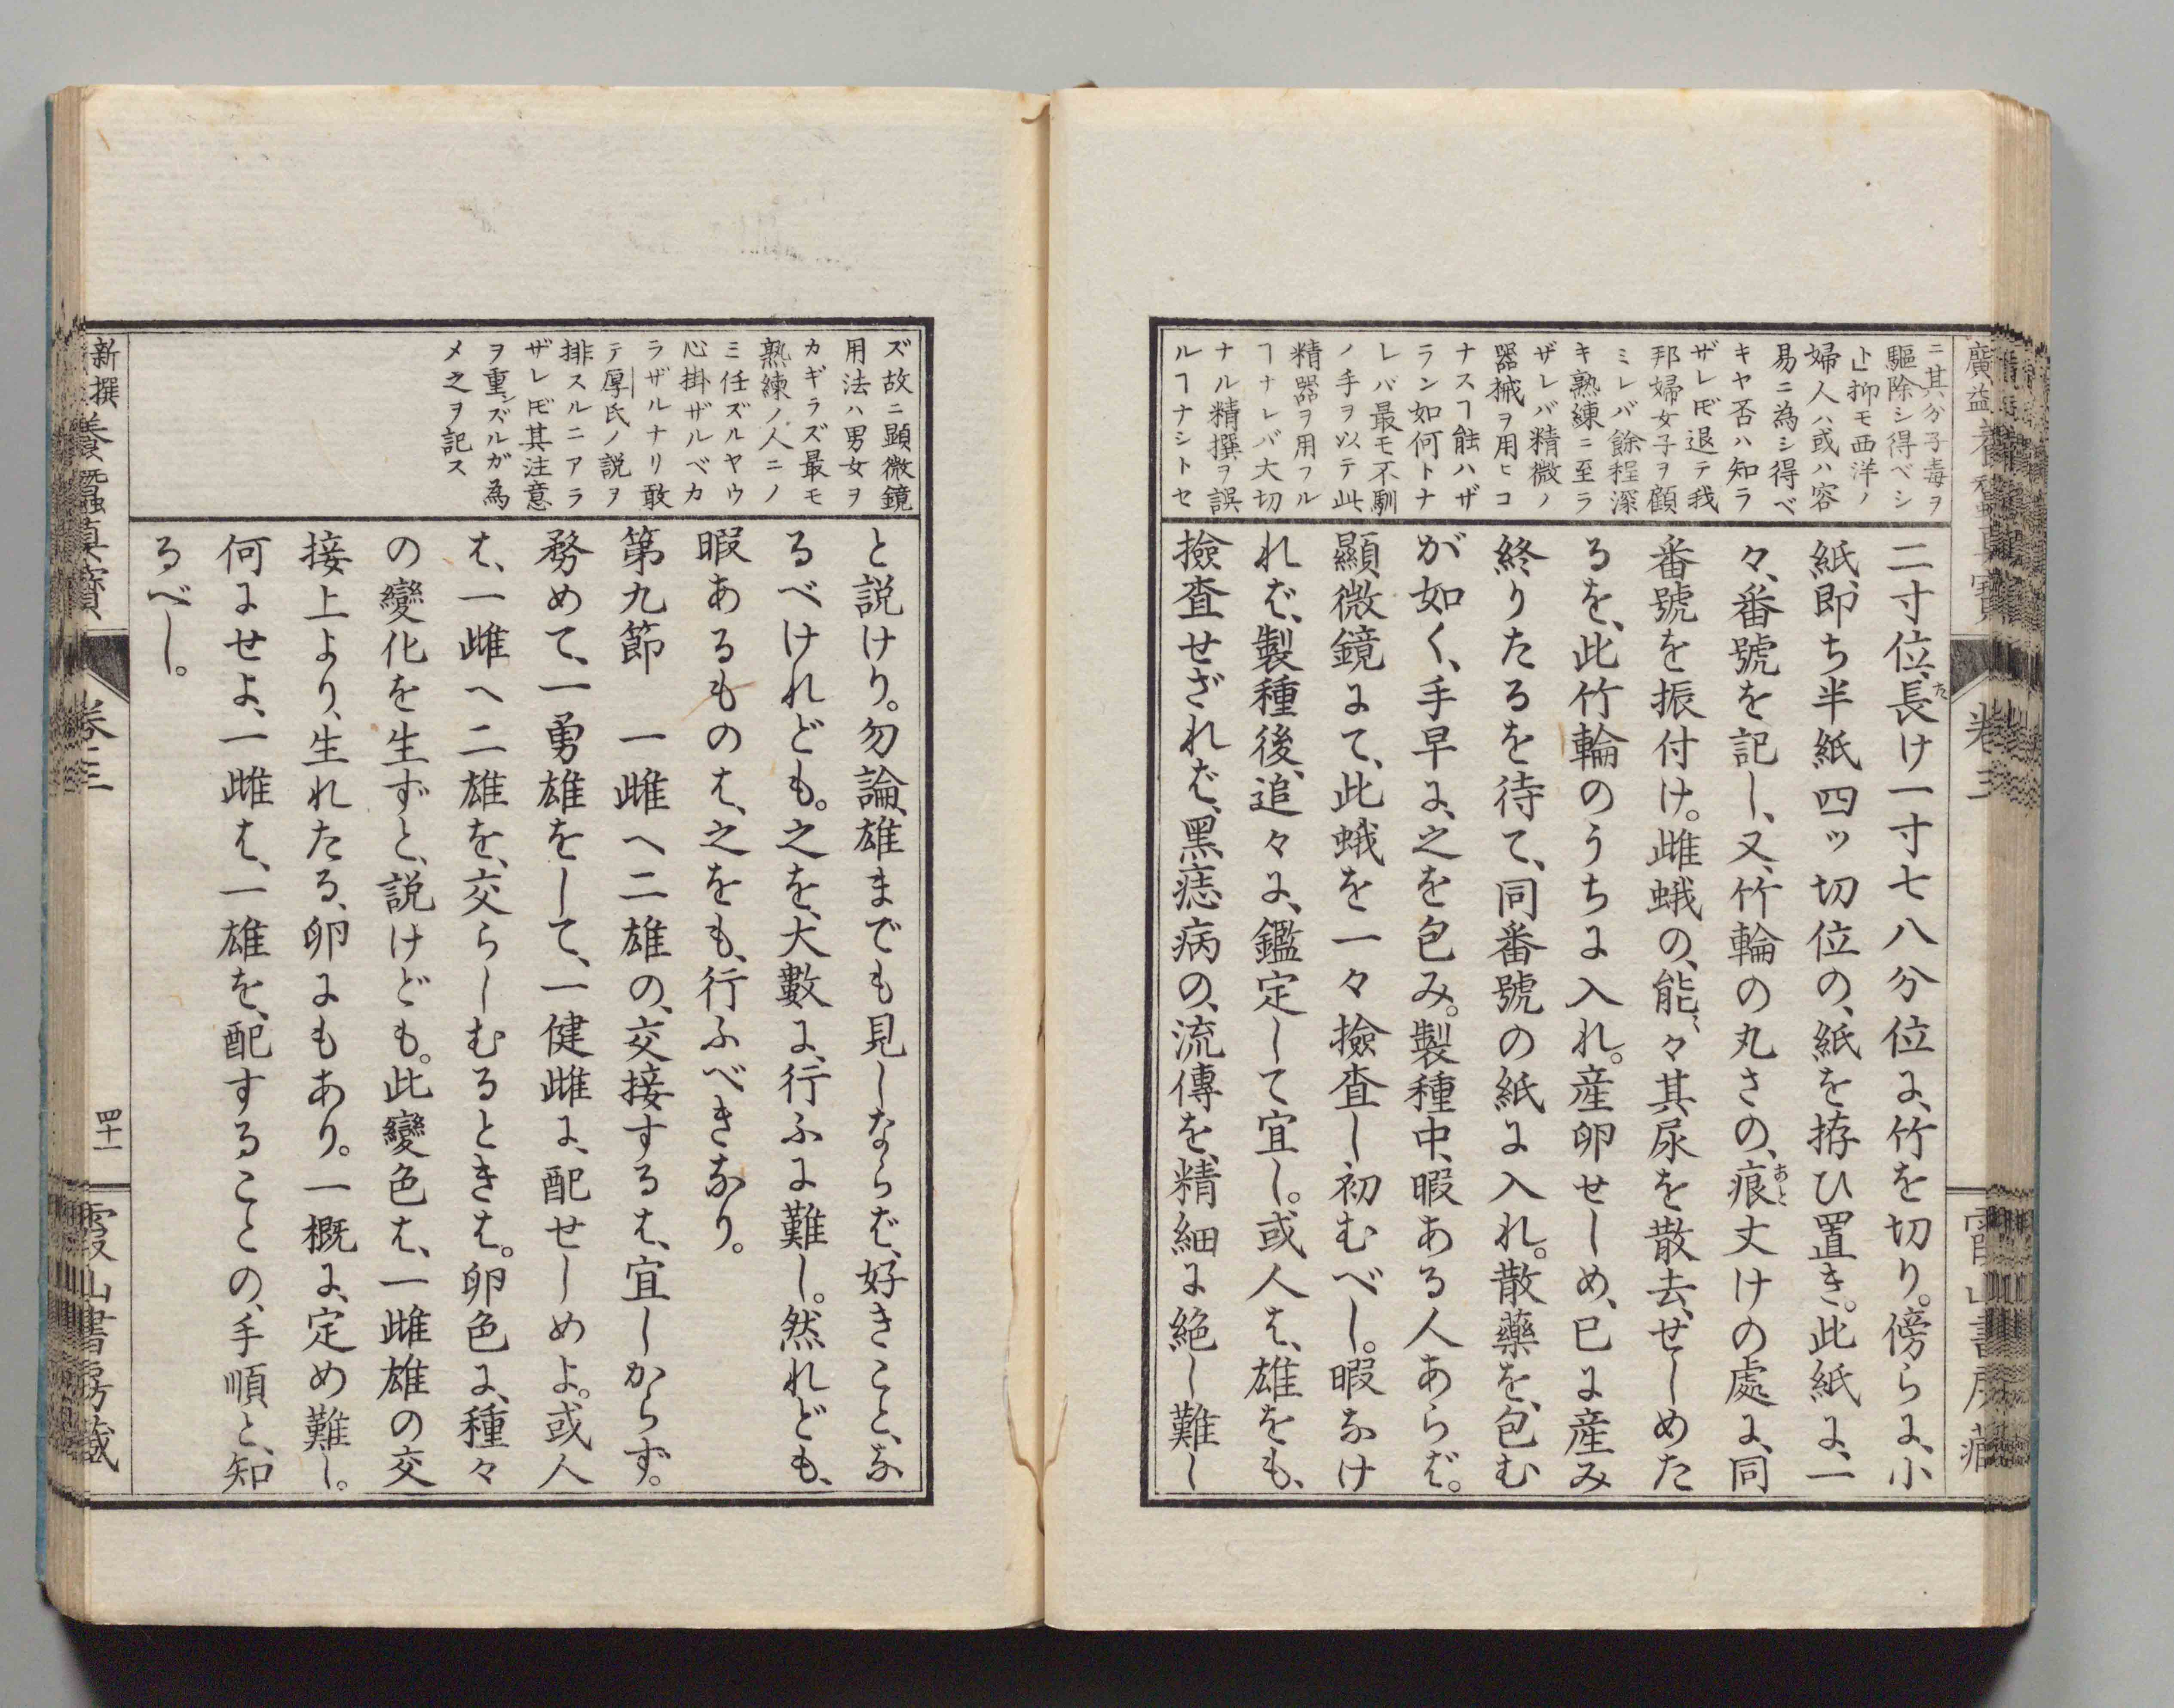 ニ其分子毒ヲ
驅除シ得ベシ
ト抑モ西洋ノ
婦人ハ或ハ容
易ニ為シ得ベ
キヤ否ハ知ラ
ザレ𪜈退テ我
邦婦女子ヲ顧
ミレバ餘程深
キ熟練ニ至ラ
ザレバ精微ノ
器械ヲ用ヒコ
ナスヿ能ハザ
ラン如何トナ
レバ最モ不馴
ノ手ヲ以テ此
精器ヲ用フル
ヿナレバ大切
ナル精撰ヲ誤
ルヿナシトセ
二寸位、長け一寸七八分位に、竹を切り。傍らに、小
紙、即ち半紙四ッ切位の、紙を拵ひ置き。此紙に、一
々、番號を記し、又、竹輪の丸さの、痕丈けの處に、同
番號を振付け。雌蛾の、能々其尿を散去、せしめた
るを、此竹輪のうちに入れ。産卵せしめ、已に産み
終りたるを待て、同番號の紙に入れ。散藥を、包む
が如く、手早に、之を包み。製種中、暇ある人あらば。
顯微鏡にて、此蛾を一々撿査し初むべし。暇なけ
れば、製種後、追々に、鑑定して宜し。或人は、雄をも、
撿査せざれば、黒痣病の、流傳を、精細に絶し難し
卷三
ズ故ニ顯微鏡
用法ハ男女ヲ
カギラズ最モ
熟練ノ人ニノ
ミ任ズルヤウ
心掛ザルベカ
ラザルナリ敢
テ厚氏ノ説ヲ
排スルニアラ
ザレ𪜈其注意
ヲ重ンズルガ為
メ之ヲ記ス
と説けり。勿論、雄までも見しならば、好きこと、な
るべけれども。之を、大數に、行ふに難し。然れども、
暇あるものは、之をも、行ふべきなり。
第九節　一雌へ二雄の、交接するは、宜しからず。
務めて、一勇雄をして、一健雌に、配せしめよ。或人
は、一雌へ二雄を、交らしむるときは。卵色に、種々
の變化を生ずと、説けども。此變色は、一雌雄の交
接上より、生れたる、卵にもあり。一概に、定め難し。
何にせよ、一雌は、一雄を、配することの、手順と、知
るべし。
新撰養蠶眞寶
卷三
四十一
霞山書房藏